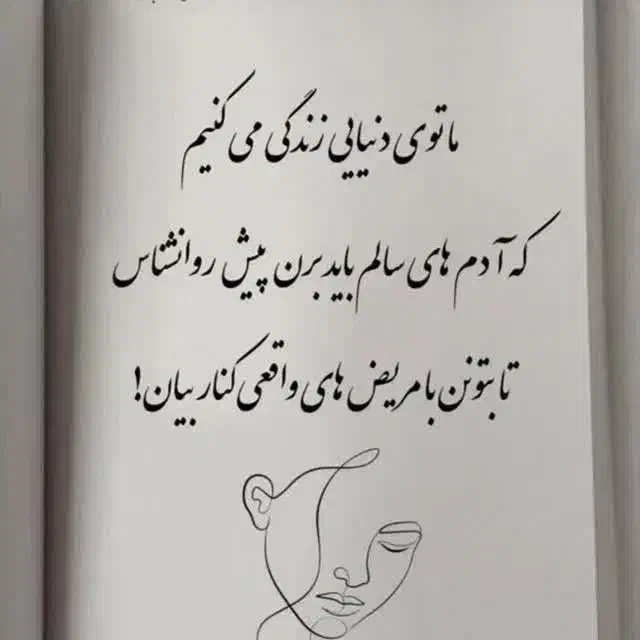 ما توی دنیایی زندگی می کنیم
که آدم های سالم باید برن پیش روانشناس
تا بتونن با مریض های واقعی کنار بیان!